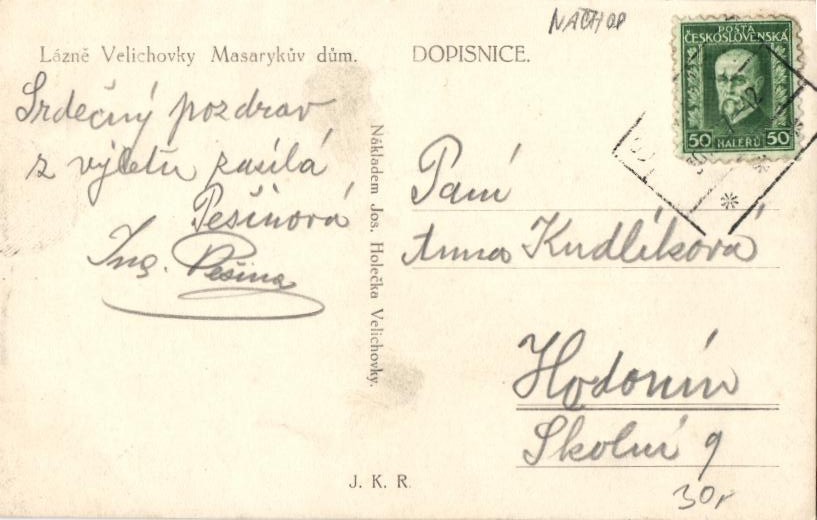 NÁCHOD
Lázně Velichovky Masarykův dům.
Srdečný pozdrav
z výletu zasílá
Pešinová
Ing. Pešina
Nákladem Jos. Holečka Velichovky.
J. K. R.
DOPISNICE.
POŠTA
ČESKOSLOVENSKÁ
50 HALÉŘŮ 50
Paní
Anna Kudlíková
Hodonín
Školní 9